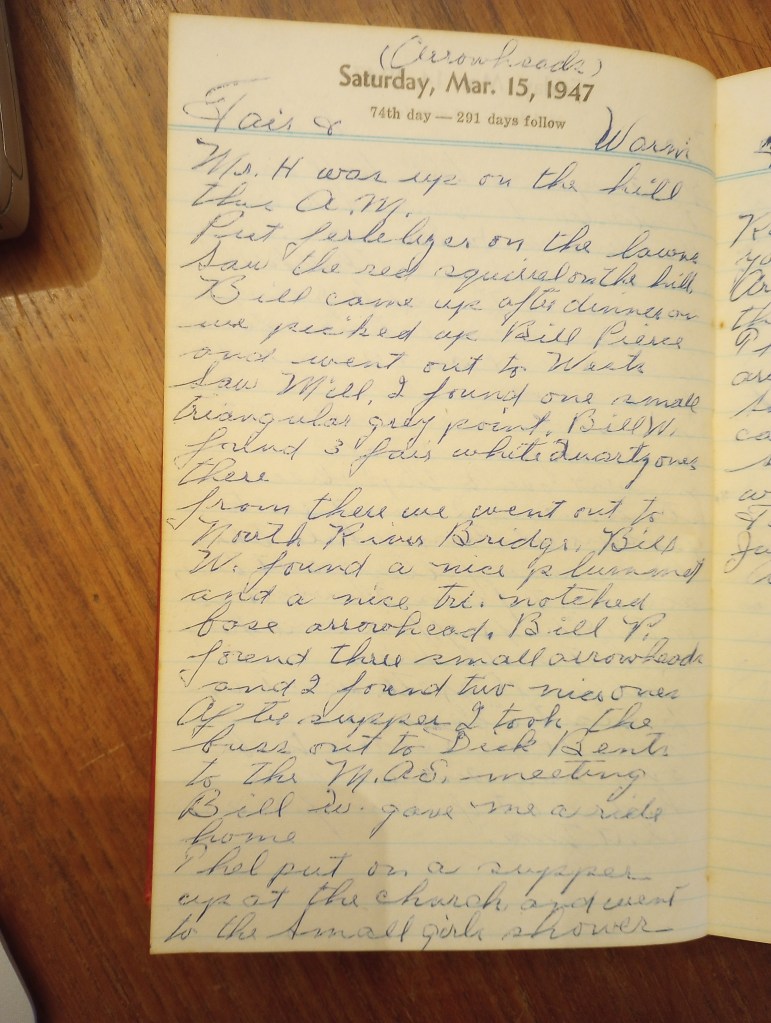 (Arrowheads)
Saturday, Mar. 15, 1947
74th day — 291 days follow
Fair & Warm
Mr. H was up on the hill
this A.M.
Put fertelizer on the lawns
saw the red squirrel on the hill
Bill came up after dinner an
we picked up Bill Pierce
and went out to
Saw Mill, I found one small
triangular grey point. Bill W.
found 3 fair white Quartz ones
there
from there we went out to
North River Bridge. Bill
W. found a nice plummet
and a nice tri. notched
base arrowhead. Bill P.
found three small arrowheads
and I found two nice ones
After supper I took the
buss out to Dick Bents
to the M.A.S. meeting
Bill W. gave me a ride
home
Thel put on a supper
up at the church and went
to the Small girls shower